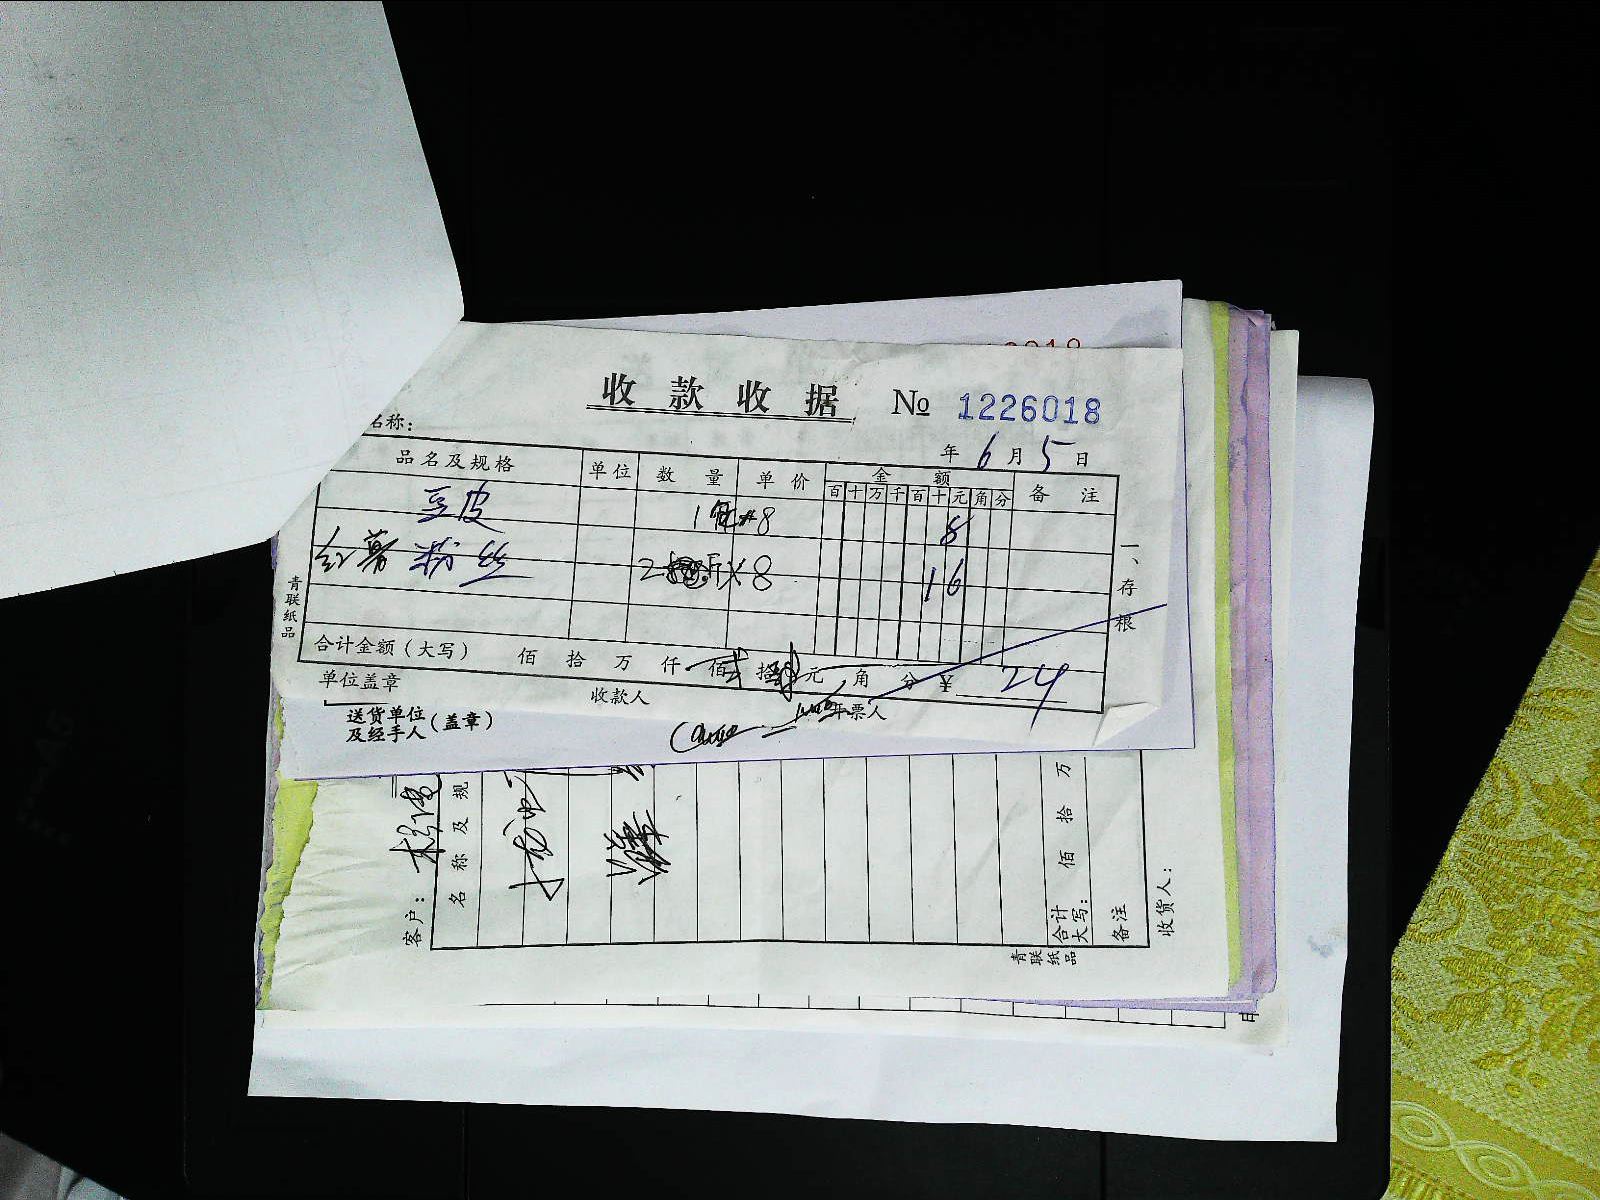 收款收据 № 1226018
名称:
年 6 月 5 日
品名及规格 单位 数量 单价 金额 备注
百 十 万 千 百 十 元 角 分
豆皮 1 8 8
红薯粉丝 2 斤 X 8 16
合计金额(大写) 佰 拾 万 仟 佰 贰 拾 肆 元 角 分 ¥ 24
单位盖章 收款人 开票人
一、存根
青联纸品
送货单位
及经手人(盖章)
客户:
名称及规
合计
大写: 佰 拾 万
备注
收货人:
青联纸品